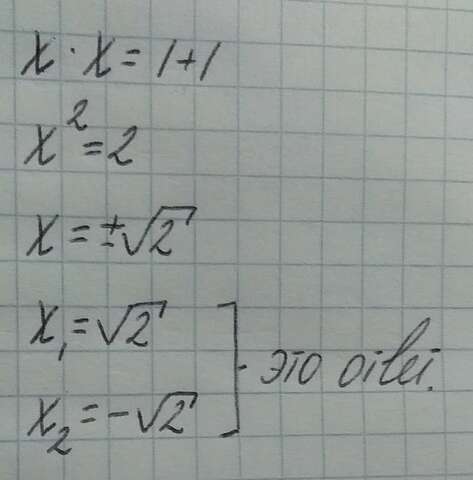 x · x = 1+1
x² = 2
x = ±√2
x₁ = √2
x₂ = -√2
- это ответ.